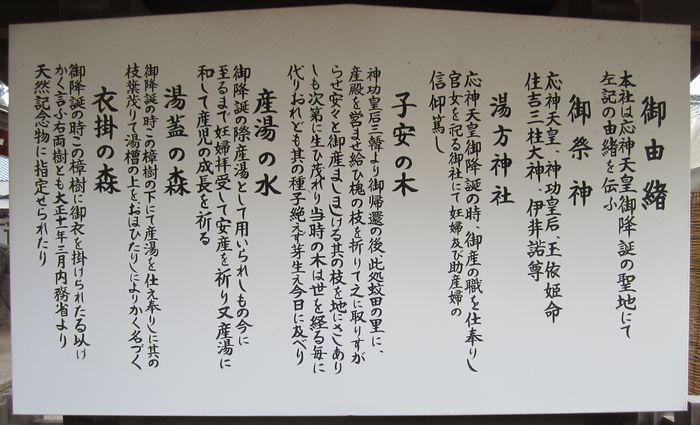 御由緒
本社は応神天皇御降誕の聖地にて
左記の由緒を伝ふ
御祭神
応神天皇、神功皇后、玉依姫命
住吉三柱大神、伊弉諾尊
湯方神社
応神天皇御降誕の時、御産の職を仕奉りし
官女を祀る御社にて妊婦及び助産婦の
信仰篤し
子安の木
神功皇后三韓より御帰還の後、此処蚊田の里に、
産殿を営ませ給ひ槐の枝を折りて之に取りすが
らせ安々と御産ましましける其の枝を地にさしあり
しも次第に生ひ茂れり当時の木は世を経る毎に
代りおれども其の種子絶えず芽生え今日に及べり
産湯の水
御降誕の際産湯として用いられしもの今に
至るまで妊婦拝受して安産を祈り又産湯に
和して産児の成長を祈る
湯蓋の森
御降誕の時この樟樹の下にて産湯を仕え奉りしに其の
枝葉茂りて湯槽の上をおほひたりしによりかく名づく
衣掛の森
御降誕の時この樟樹に御衣を掛けられたる以て
かく言ふ右両樹とも大正十一年三月内務省より
天然記念物に指定せられたり